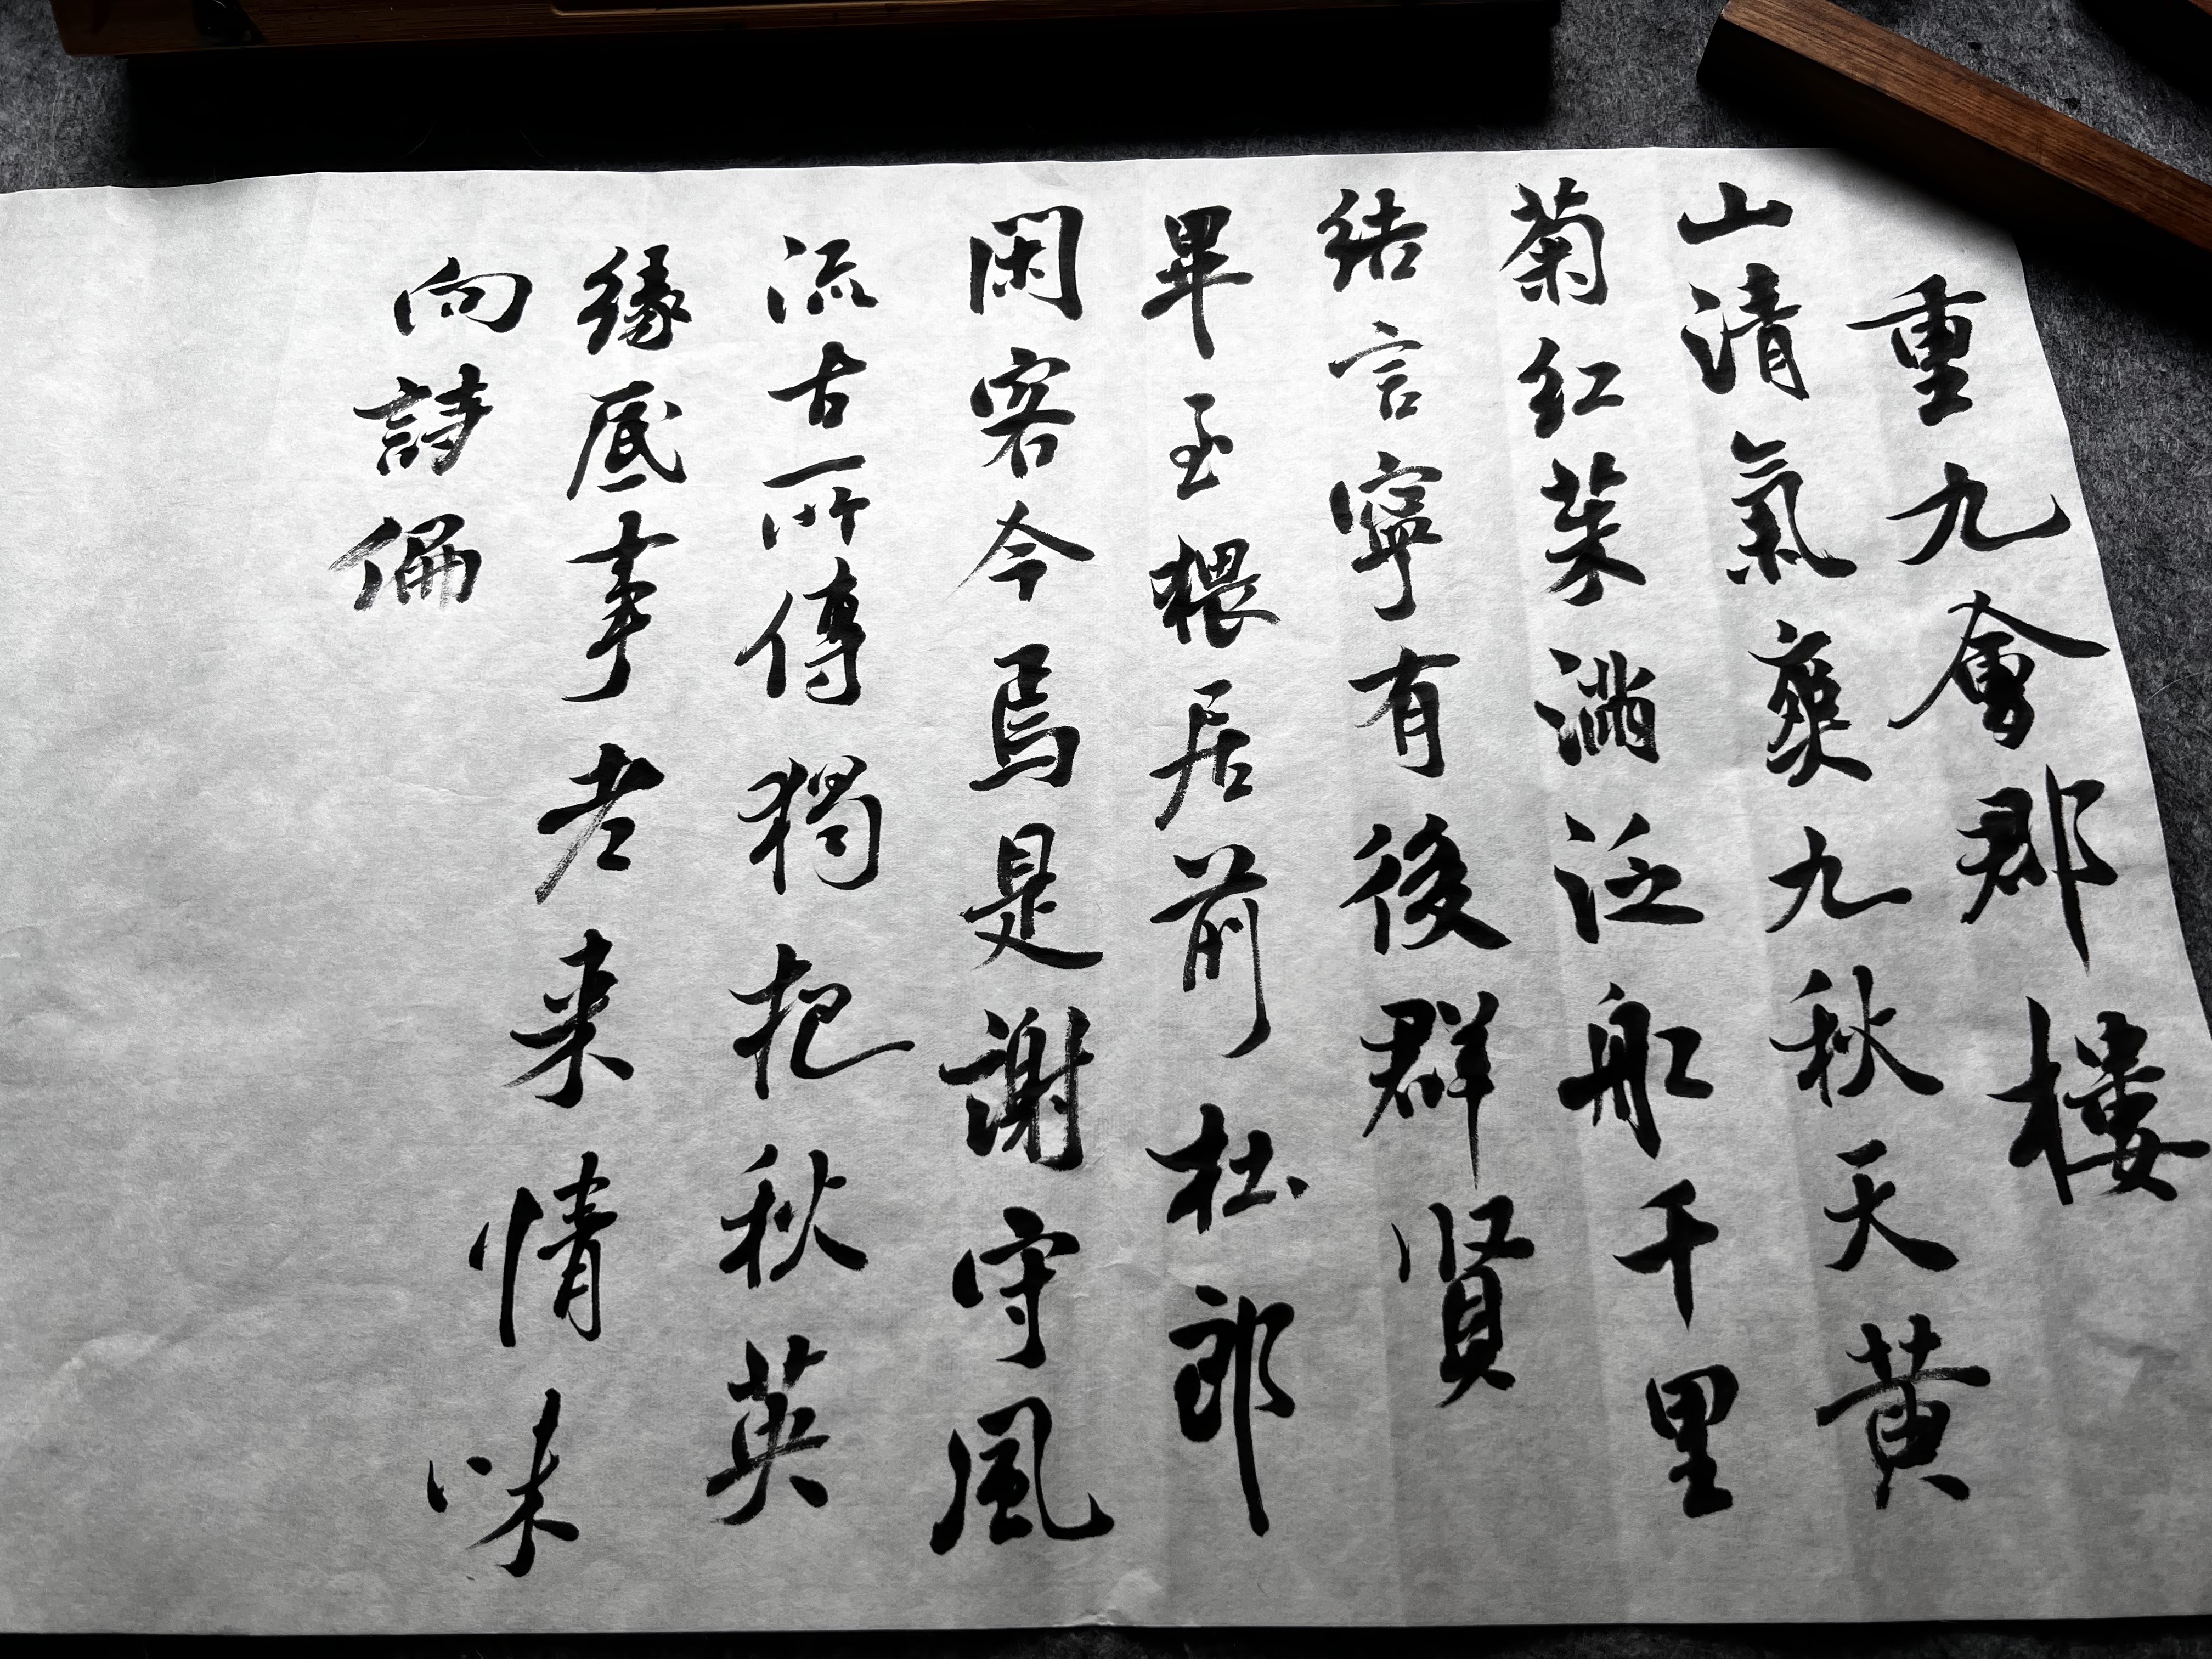 重九會郡樓
山清氣爽九秋天黄
菊红茱滿泛船千里
結言寧有後群賢
畢至猥居前杜郎
閑客今焉是謝守風
流古所傳獨把秋英
緣底事老来情味
向詩偏